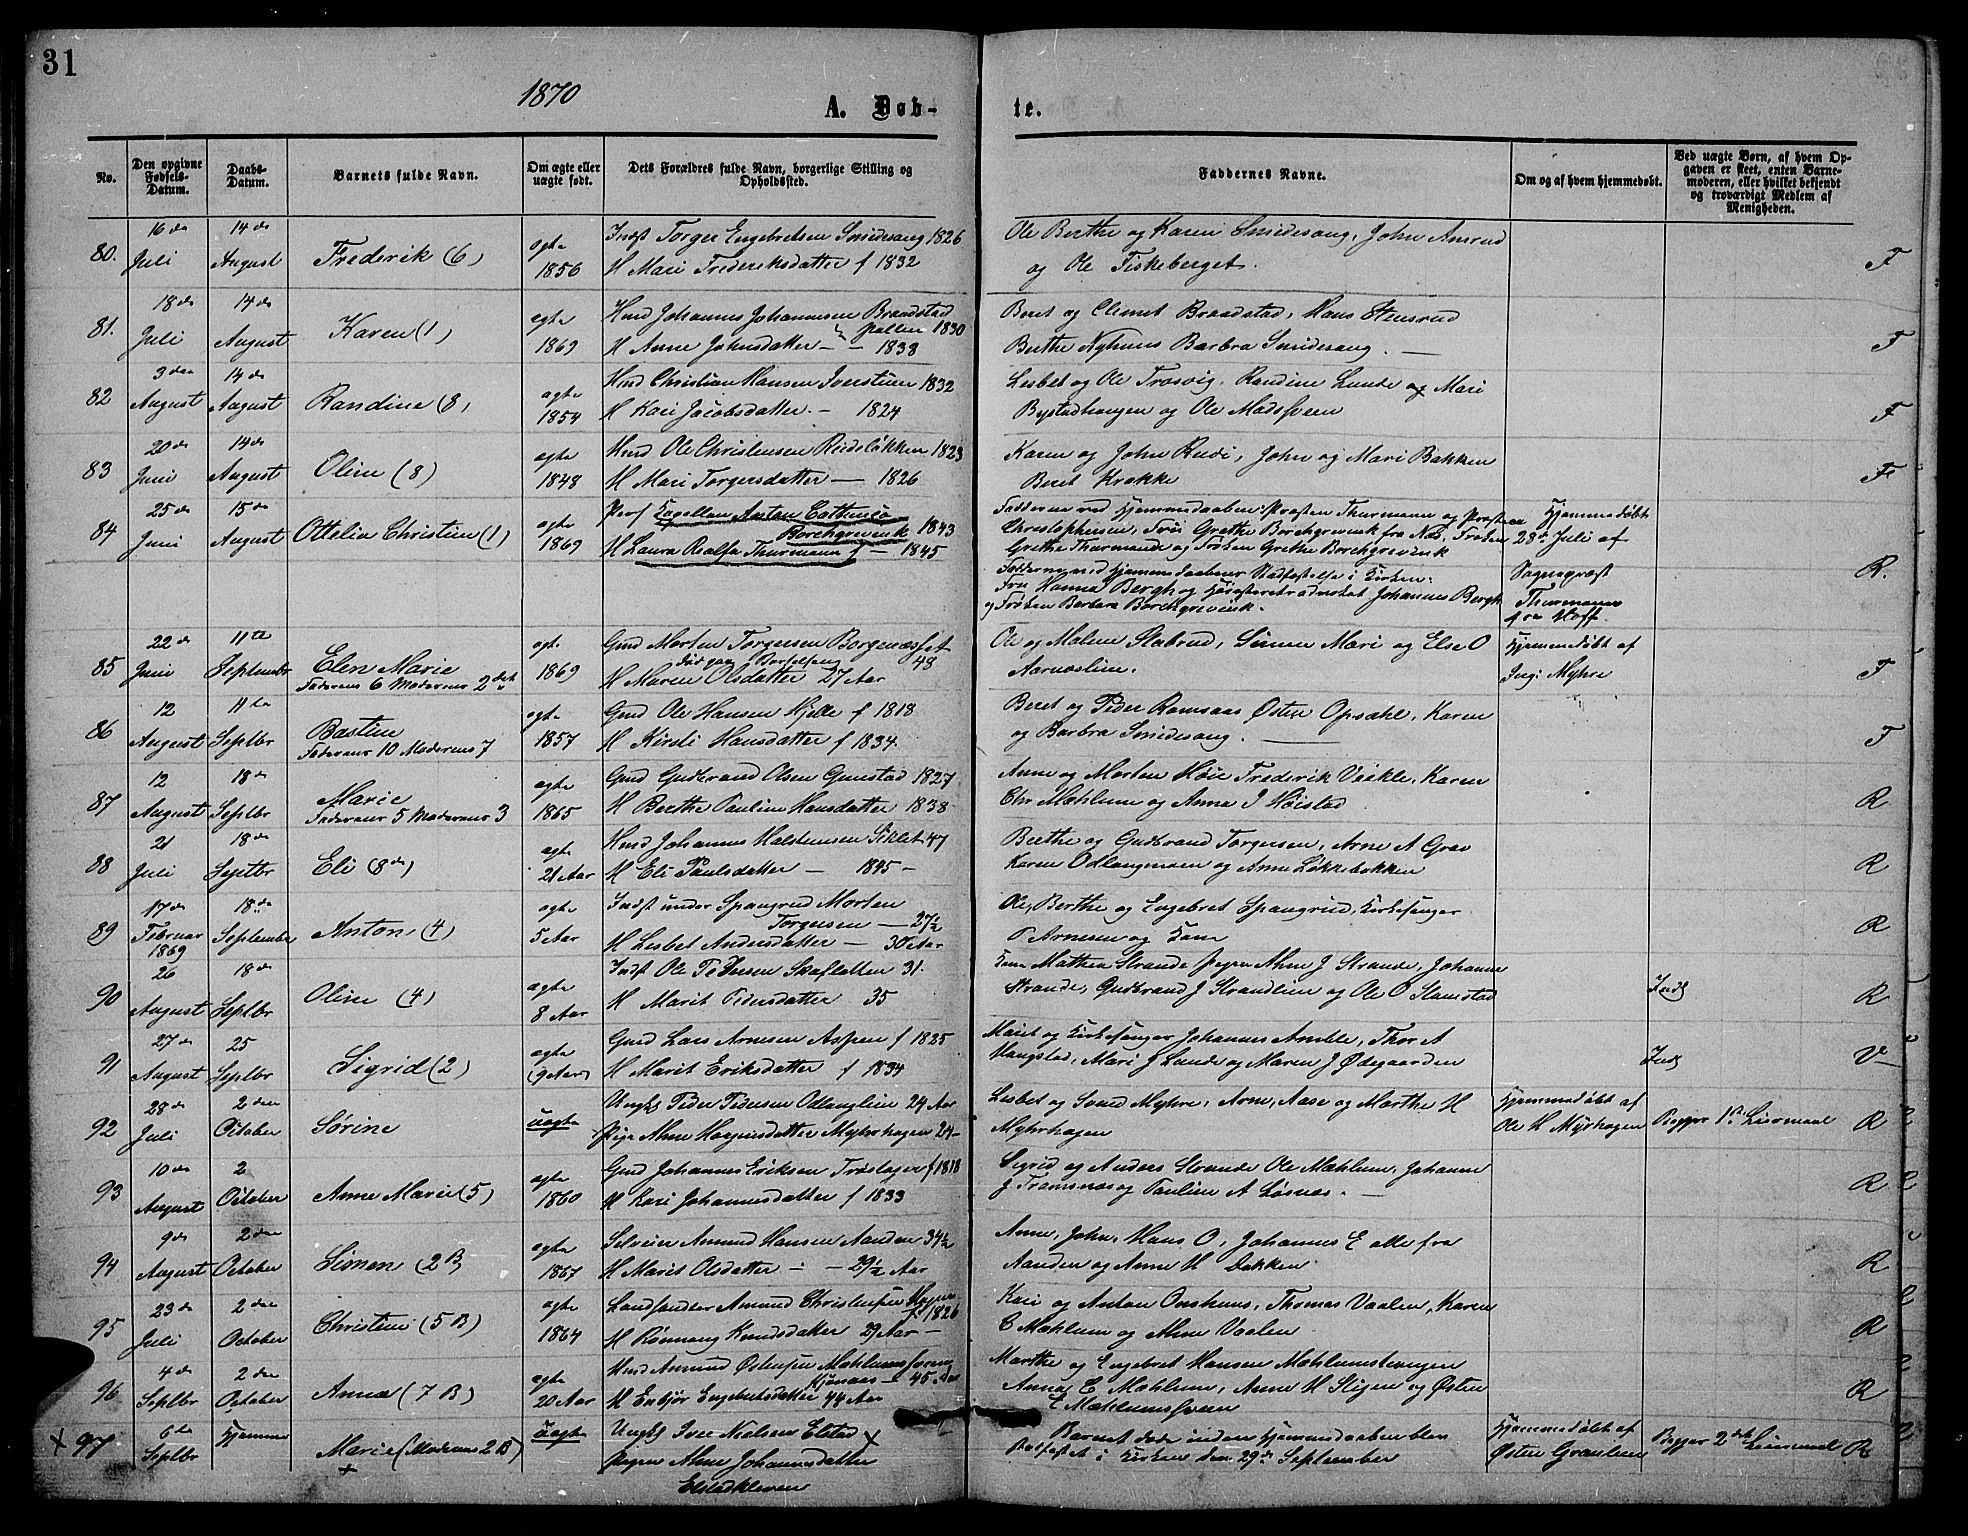 31
1870
A. Døb-
te.
No.
Den opgivne Fødsels-Datum.
Daabs-Datum.
Barnets fulde Navn.
Om ægte eller uægte født.
Dets Forældres fulde Navn, borgerlige Stilling og Opholdssted.
Faddernes Navne.
Om og af hvem hjemmedøbt.
Ved uægte Børn, af hvem Op-
gaven er skeet, enten Barne-
moderen, eller hvilket bekjendt
og troværdigt Medlem af
Menigheden.
80. 16de Juli 14de August Frederik (6) ægte 1856
Indst Torger Engebretsen Smidesang 1826
H Mari Frederiksdatter f 1832
Ole Berthe og Karen Smidesang, John Amrud
og Ole Fiskeberget. F
81. 18de Juli 14de August Karen (1) ægte 1869
Hmd Johannes Johannesen Brandstad
pallen 1830
H Anne Johnsdatter - 1838
Beret og Clemet Brandstad, Hans Stensrud
Berthe Nyhuus Barbra Smidesang. F
82 3die August 14de August Randine (8) ægte 1854
Hmd Christian Hansen Iverstuen 1832
H Kari Jacobsdatter - 1824
Lisbet og Ole Trosvig, Randine Lunde og Mari
Bystadhangen og Ole Madssveen F
83 20de Juni 14de August Oline (8) ægte 1848
Hmd Ole Christensen Reideløkken 1823
H Mari Torgersdatter - 1826
Karen og John Rudi, John og Mari Bakken
Beret Krække F
84 25de Juni 15de August Ottelia Christine (1) ægte 1869
Pers Capellan Anton Cathinco
Borchgrevink 1843
H Laura Realfa Thurmann f - 1845
Fadderne ved Hjemmedaaben: Præsten Thurmann og Præsten
Christophersen, Frøi Grethe Borchgrevink fra Næs, Frøken
Grethe Thurmann og Frøken Grethe Borchgrevink
Fadderne ved Hjemmedaabens Stadfæstelse i Kirken:
Fru Hanna Bergh og Høiesteretsadvokat Johannes Bergh
og Frøken Barbara Borchgrevink.
Hjemmedøbt
28de Juli af
Sognepræst
Thurmann
fra Hoff. R.
85 22de Juni 11te September Elen Marie ægte 1869
Faderens 6 Moderens 2det
Gmd Morten Torgersen Borgenæsset
48
H Maren Olsdatter 27 Aar
Ole og Malene Stabrud, Simen Mari og Else O
Aarnæslien.
Hjemmedøbt af
Ing: Myhre F
86 12 August 11te Septbr Bastine ægte 1857
Faderens 10 Moderens 7
Gmd Ole Hansen Hjelle f 1818
H Kirsti Hansdatter f 1834
Beret og Peder Ramsaas Østen Opsahl, Karen
og Barbra Smidesang. F
87 12 August 18de Septbr Marie ægte 1865
Faderens 5 Moderens 3
Gmd Gudbrand Olsen Gunstad 1827
H Berthe Pauline Hansdatter 1838
Anne og Morten Høie Frederik Veikle, Karen
Chr Mæhlum og Anne J Høistad R
88 21 Juli 18de Septbr Eli (8de) ægte 21 Aar
Hmd Johannes Halstensen Siklet 47
H Eli Paulsdatter - 1845 -
Berthe og Gudbrand Torgersen, Arne A Grav
Karen Odlangmoen og Anne Løkkebakken R
89 17de Februar 1869 18de September Anton (4) ægte 5 Aar
Indst under Spangrud Morten
Torgersen - 27½
H Lisbet Andersdatter - 30 Aar
Ole, Berthe og Engebret Spangrud, Kirkesanger
P Arnesen og Kone R
90 26 August 18de Septbr Oline (4) ægte 8 Aar
Indst Ole Pedersen Skafletten 31.
H Marit Pedersdatter 35
Kone Mathea Strande Pigen Anne J Strande, Johanne
Strande, Gudbrand J Strandlien og Ole O Stamstad
Inds R
91 27de August 25 Septbr Sigrid (2) ægte (9 Aar)
Gmd Lars Arnesen Aspen f 1825
H Marit Eriksdatter f 1834
Marit og Kirkesanger Johannes Amble, Thor A
Mangstad, Mari J Lunde og Maren J Ødegaarden
Inds V
92 28de Juli 2den October Sørine uægte
Ungks Peder Pedersen Odlanglien 24 Aar
Pige Anne Haagensdatter Myhrhagen 24 -
Lisbet og Svend Myhre, Arne, Aase og Marthe H
Myhrhagen
Hjemmedøbt af
Ole H Myrhagen
Begges 1ste Leiermaal R
93 10de August 2 October Anne Marie (5) ægte 1860
Gmd Johannes Eriksen Troslager f 1818
H Kari Johannesdatter f 1833
Sigrid og Anders Strande Ole Mæhlum, Johanne
J Tramsnæs og Pauline A Løsnæs. R
94 9de August 2den October Simen (2 B) ægte 1867
Selveier Amund Hansen Aanden 34½
H Marit Olsdatter - 29½ Aar
Anne, John, Hans O, Johannes E alle fra
Aanden og Anne H Dokken R
95 23de Juli 2den October Christine (5 B) ægte 1864
Landhandler Amund Christensen
f 1826
H Rønnaug Knudsdatter 29 Aar -
Kari og Anton Onshuus, Thomas Vaalen, Karen
C Mæhlum og Anne Vaalen R
96 4de Septbr 2den October Anna (7 B) ægte 20 Aar
Hmd Amund Østensen Mæhlumssveen
45 Aar
H Embjør Engebretsdatter 44 Aar
Marthe og Engebret Hansen Mæhlumstuengen
Anna E Mæhlum, Anne H Stigen og Østen
E Mæhlumssveen R
x 97 6te Septbr Hjemme Marie (Moderens 2 B) uægte
x
Ungks Iver Nielsen Elstad x
Pigen Anne Johannesdatter
Elstadkleven
Barnet døde inden Hjemmedaaben blev
Stadfæstet i Kirken den 29de September
Hjemmedøbt af
Østen Graulien
Begges 2det Leiermaal R